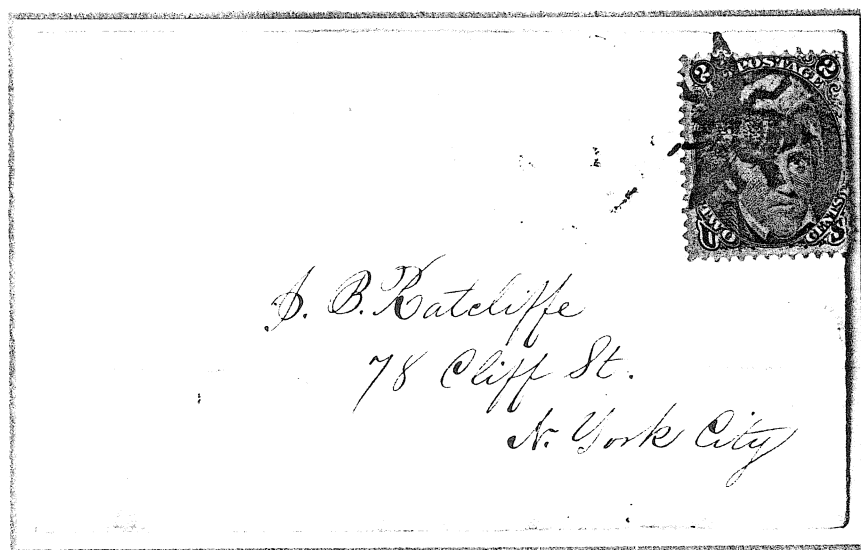 2 POSTAGE 2
TWO CENTS
U S
J. B. Ratcliffe
78 Cliff St.
N. York City